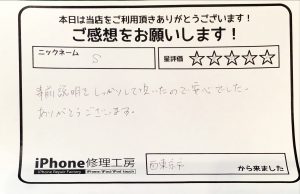 本日は当店をご利用頂きありがとうございます！
ご感想をお願いします！
ニックネーム
S
星評価 ☆☆☆☆☆
事前説明をしっかりして頂いたので安心でした。
ありがとうございます。
iPhone修理工房
iPhone Repair Factory
iPhone/iPad/iPod touch
西東京市
から来ました